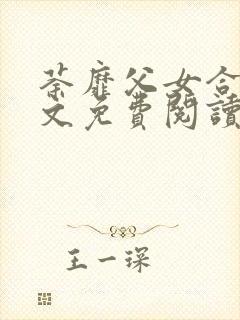 荼靡父女合
文免費閱讀
王一琛